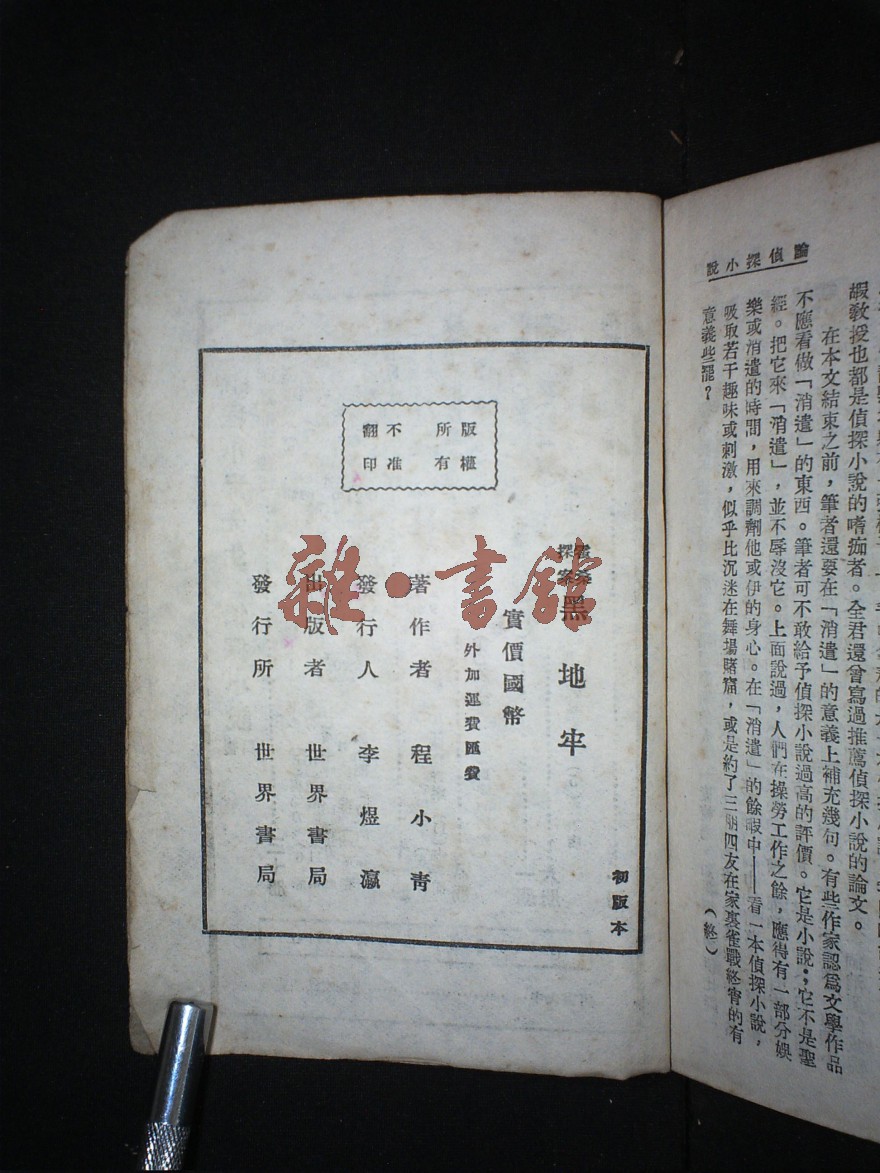 論偵探小說
嘏教授也都是偵探小說的嗜痂者。全君還曾寫過推薦偵探小說的論文。
在本文結束之前，筆者還要在「消遣」的意義上補充幾句。有些作家認爲文學作品
不應看做「消遣」的東西。筆者可不敢給予偵探小說過高的評價。它是小說；它不是聖
經。把它來「消遣」，並不辱沒它。上面說過，人們在操勞工作之餘，應得有一部分娛
樂或消遣的時間，用來調劑他或伊的身心。在「消遣」的餘暇中——看一本偵探小說，
吸取若干趣味或刺激，似乎比沉迷在舞場賭窟，或是約了三朋四友在家裏雀戰終宵的有
意義些罷？
（終）
版權所有
不准翻印
初版本
霍桑探案
黑地牢
實價國幣
外加運費匯費
著作者 程小靑
發行人 李煜瀛
出版者 世界書局
發行所 世界書局
雜·書館